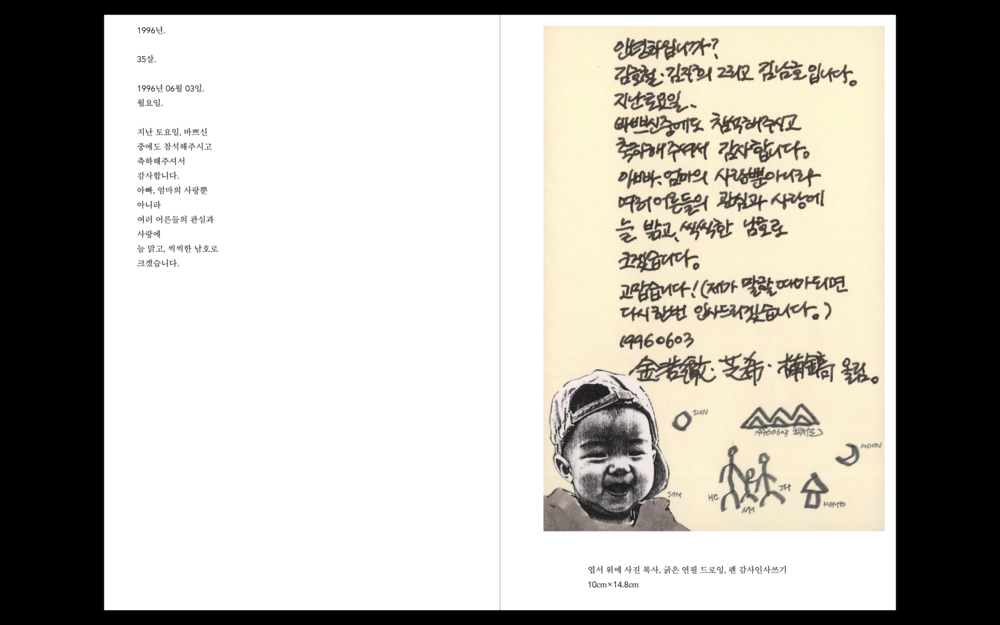 1996년.
35살.
1996년 06월 03일.
월요일.
지난 토요일, 바쁘신
중에도 참석해주시고
축하해주셔서
감사합니다.
아빠, 엄마의 사랑뿐
아니라
여러 어른들의 관심과
사랑에
늘 맑고, 씩씩한 남호로
크겠습니다.
안녕하십니까?
김호철·김지희 그리고 김남호입니다.
지난토요일,
바쁘신중에도 참석해주시고
축하해주셔서 감사합니다.
아빠, 엄마의 사랑뿐아니라
여러어른들의 관심과 사랑에
늘 맑고, 씩씩한 남호로
크겠습니다.
고맙습니다! (제가 말할때아 되면
다시한번 인사드리겠습니다.)
19960603
金浩徹·芝希· 올림.
SUN
19960603
MOON
SON
HC
JH
NH
HOME
엽서 위에 사진 복사, 굵은 연필 드로잉, 펜 감사인사쓰기
10cm×14.8cm